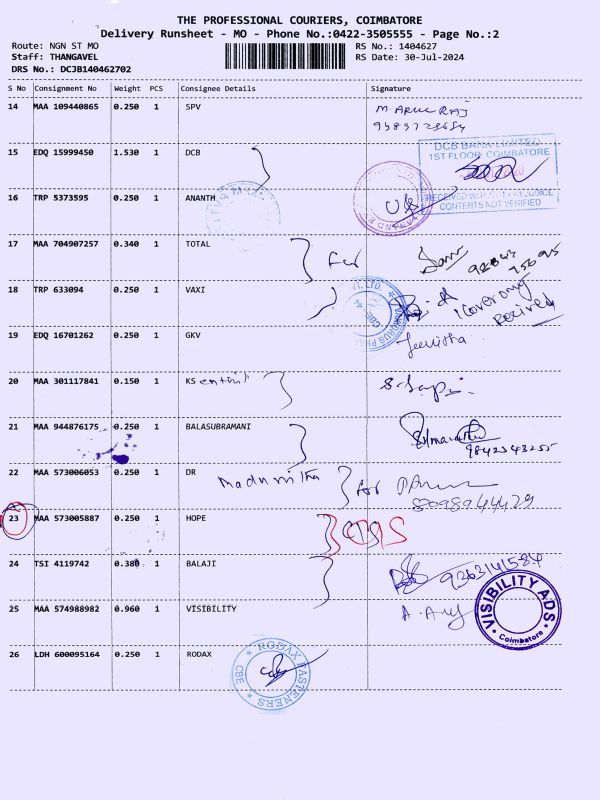 THE PROFESSIONAL COURIERS, COIMBATORE
Delivery Runsheet - MO - Phone No.:0422-3505555 - Page No.:2
Route: NGN ST MO
RS No.: 1404627
Staff: THANGAVEL
RS Date: 30-Jul-2024
DRS No.: DCJB140462702
S No Consignment No Weight PCS Consignee Details Signature
14 MAA 109440865 0.250 1 SPV
M. ARUL RAJ
15 EDQ 15999450 1.530 1 DCB
DCB BANK LIMITED
1ST FLOOR, COIMBATORE
RECEIVED WITHOUT PREJUDICE
CONTENTS NOT VERIFIED
16 TRP 5373595 0.250 1 ANANTH
17 MAA 704907257 0.340 1 TOTAL
For
18 TRP 633094 0.250 1 VAXI
19 EDQ 16701262 0.250 1 GKV
20 MAA 301117841 0.150 1 KS
21 MAA 944876175 0.250 1 BALASUBRAMANI
9842343255
22 MAA 573006053 0.250 1 DR
Madumitha
for
8098944429
23 MAA 573005887 0.250 1 HOPE
24 TSI 4119742 0.380 1 BALAJI
25 MAA 574988982 0.960 1 VISIBILITY
VISIBILITY ADS
Coimbatore
26 LDH 600095164 0.250 1 RODAX
RODAX FASTENERS
CBE